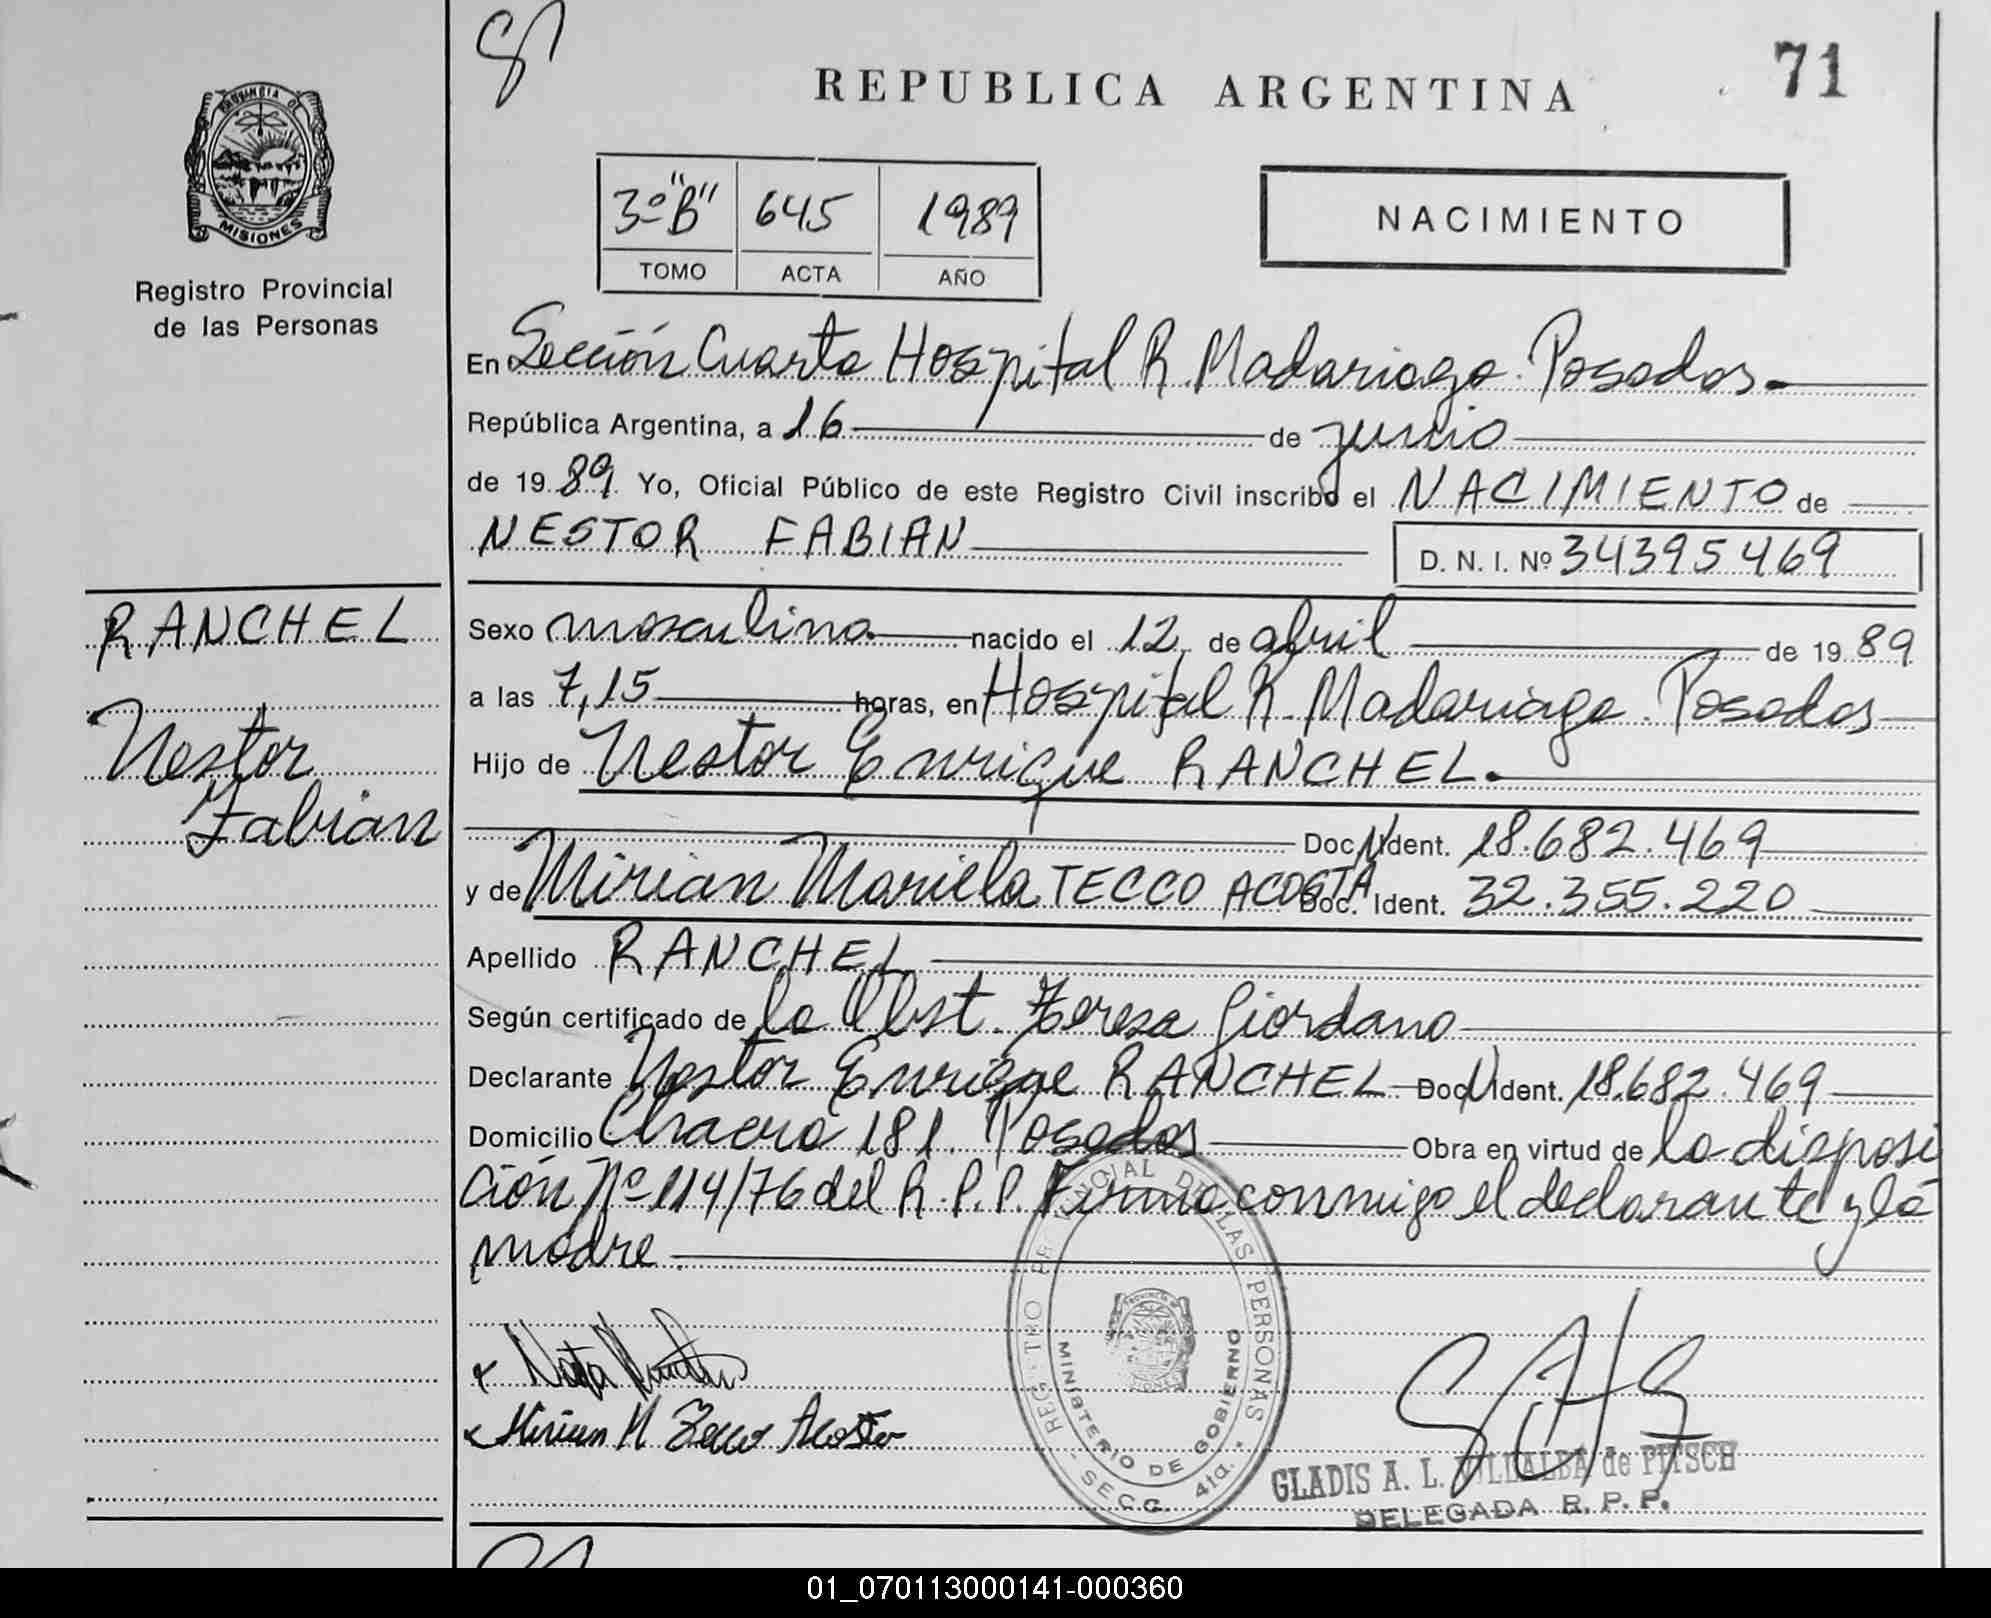 REPUBLICA ARGENTINA
71
PROVINCIA DE
MISIONES
Registro Provincial
de las Personas
3º "B" 645 1989
TOMO ACTA AÑO
NACIMIENTO
En Sección Cuarta Hospital R. Madariaga. Posadas.
República Argentina, a 16 de junio
de 1989 Yo, Oficial Público de este Registro Civil inscribo el NACIMIENTO de
NESTOR FABIAN D. N. I. Nº 34395469
RANCHEL
Nestor
Fabián
Sexo masculino nacido el 12 de abril de 1989
a las 7,15 horas, en Hospital R. Madariaga. Posadas
Hijo de Nestor Enrique RANCHEL.
Doc. N Ident. 18.682.469
y de Mirian Mariela TECCO ACOSTA Doc. Ident. 32.355.220
Apellido RANCHEL
Según certificado de la Obst. Teresa Giordano
Declarante Nestor Enrique RANCHEL Doc. N Ident. 18.682.469
Domicilio Chacra 181. Posadas Obra en virtud de la disposi
ción Nº 114/76 del R.P.P. Firma conmigo el declarante y la
madre.
Mirian M Tecco Acosta
REGISTRO PROVINCIAL DE LAS PERSONAS
MINISTERIO DE GOBIERNO
- SECC. 4ta. -
GLADIS A. L. VILLALBA de PITSCH
DELEGADA R. P. P.
01_070113000141-000360